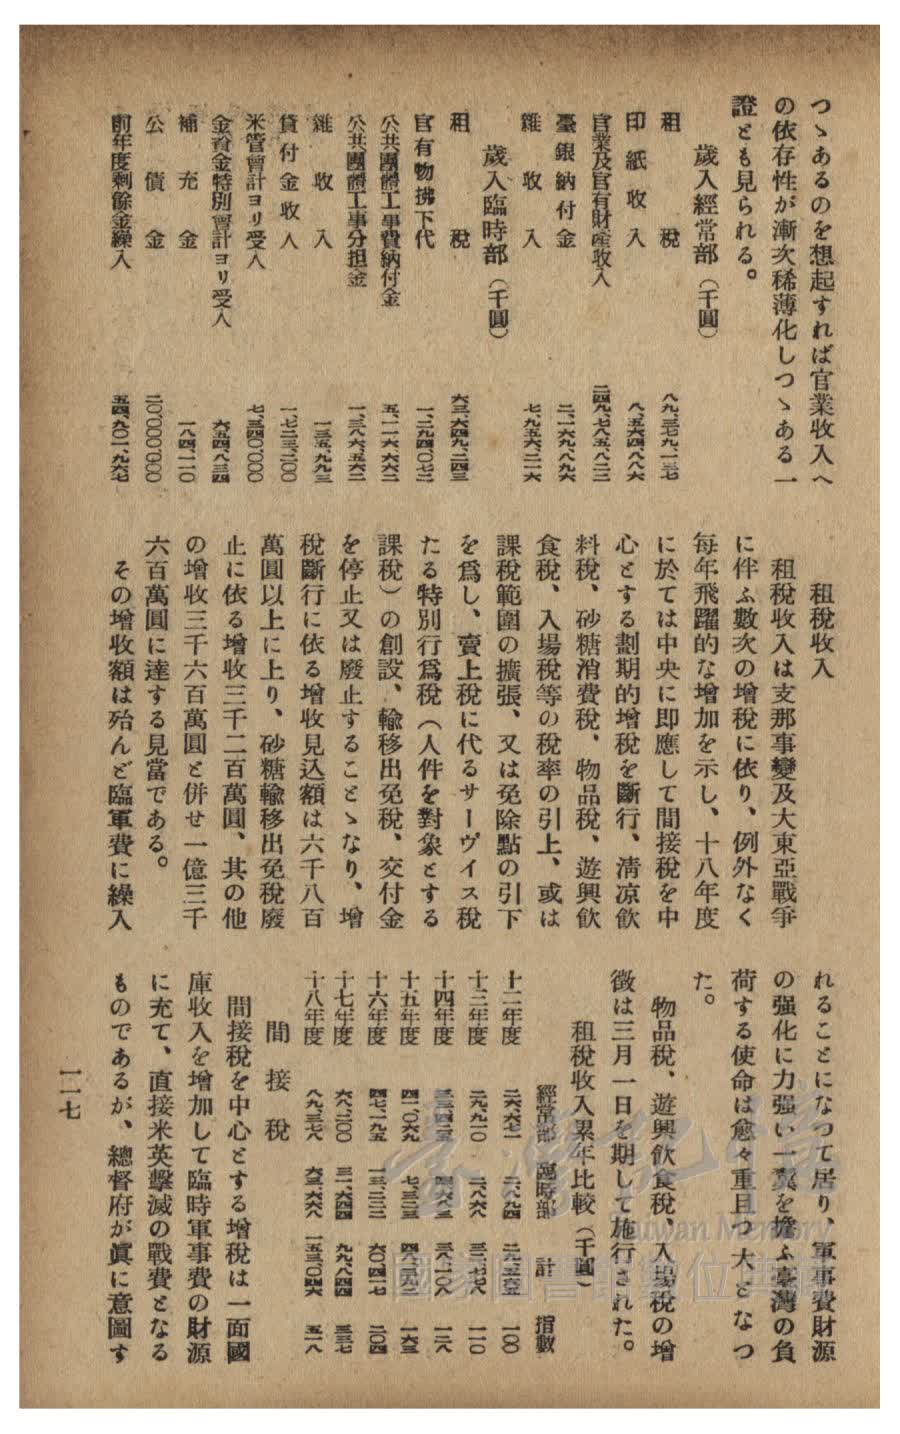 つゝあるのを想起すれば官業收入へ
の依存性が漸次稀薄化しつゝある一
證とも見られる。
歲入經常部（千圓）
租稅 八九、三七九、一三七
印紙收入 八、五六四、八八六
官業及官有財產收入 二四九、七八五、八二三
臺銀納付金 二、一六九、八九六
雜收入 七、九五六、二一六
歲入臨時部（千圓）
租稅 六三、六四九、二四三
官有物拂下代 一、二九四、〇七三
公共團體工事費納付金 五、一一六、六六二
公共團體工事分担金 一、三八六、五六二
雜收入 一三五、九九三
貸付金收入 一、七二三、二〇〇
米管會計ヨリ受入 七、三四〇、〇〇〇
金資金特別會計ヨリ受入 六五四、八三四
補充金 一八四、二一〇
公債金 二〇、〇〇〇、〇〇〇
前年度剩餘金繰入 五四、九〇一、九六七
租稅收入
租稅收入は支那事變及大東亞戰爭
に伴ふ數次の增稅に依り、例外なく
每年飛躍的な增加を示し、十八年度
に於ては中央に即應して間接稅を中
心とする劃期的增稅を斷行、淸凉飮
料稅、砂糖消費稅、物品稅、遊興飮
食稅、入場稅等の稅率の引上、或は
課稅範圍の擴張、又は免除點の引下
を爲し、賣上稅に代るサーヴイス稅
たる特別行爲稅（人件を對象とする
課稅）の創設、輸移出免稅、交付金
を停止又は廢止することゝなり、增
稅斷行に依る增收見込額は六千八百
萬圓以上に上り、砂糖輸移出免稅廢
止に依る增收三千二百萬圓、其の他
の增收三千六百萬圓と併せ一億三千
六百萬圓に達する見當である。
その增收額は殆んど臨軍費に繰入
れることになつて居り、軍事費財源
の强化に力强い一翼を擔ふ臺灣の負
荷する使命は愈々重且つ大となつ
た。
物品稅、遊興飮食稅、入場稅の增
徵は三月一日を期して施行された。
租稅收入累年比較（千圓）
經常部 臨時部 計 指數
十二年度 二六、六七一 二、八九四 二九、五六五 一〇〇
十三年度 二九、九一〇 二、八六八 三二、七七八 一一〇
十四年度 三三、四二五 四、六八三 三八、一〇八 一二八
十五年度 四一、〇六九 七、三二三 四八、三九二 一六三
十六年度 四七、一九五 一三、二二二 六〇、四一七 二〇四
十七年度 六八、二〇〇 三一、六四四 九九、八四四 三三七
十八年度 八九、三七八 六三、六六八 一五三、〇四六 五一八
間接稅
間接稅を中心とする增稅は一面國
庫收入を增加して臨時軍事費の財源
に充て、直接米英擊滅の戰費となる
ものであるが、總督府が眞に意圖す
一一七
臺灣記憶
Taiwan Memory
國家圖書館數位典藏